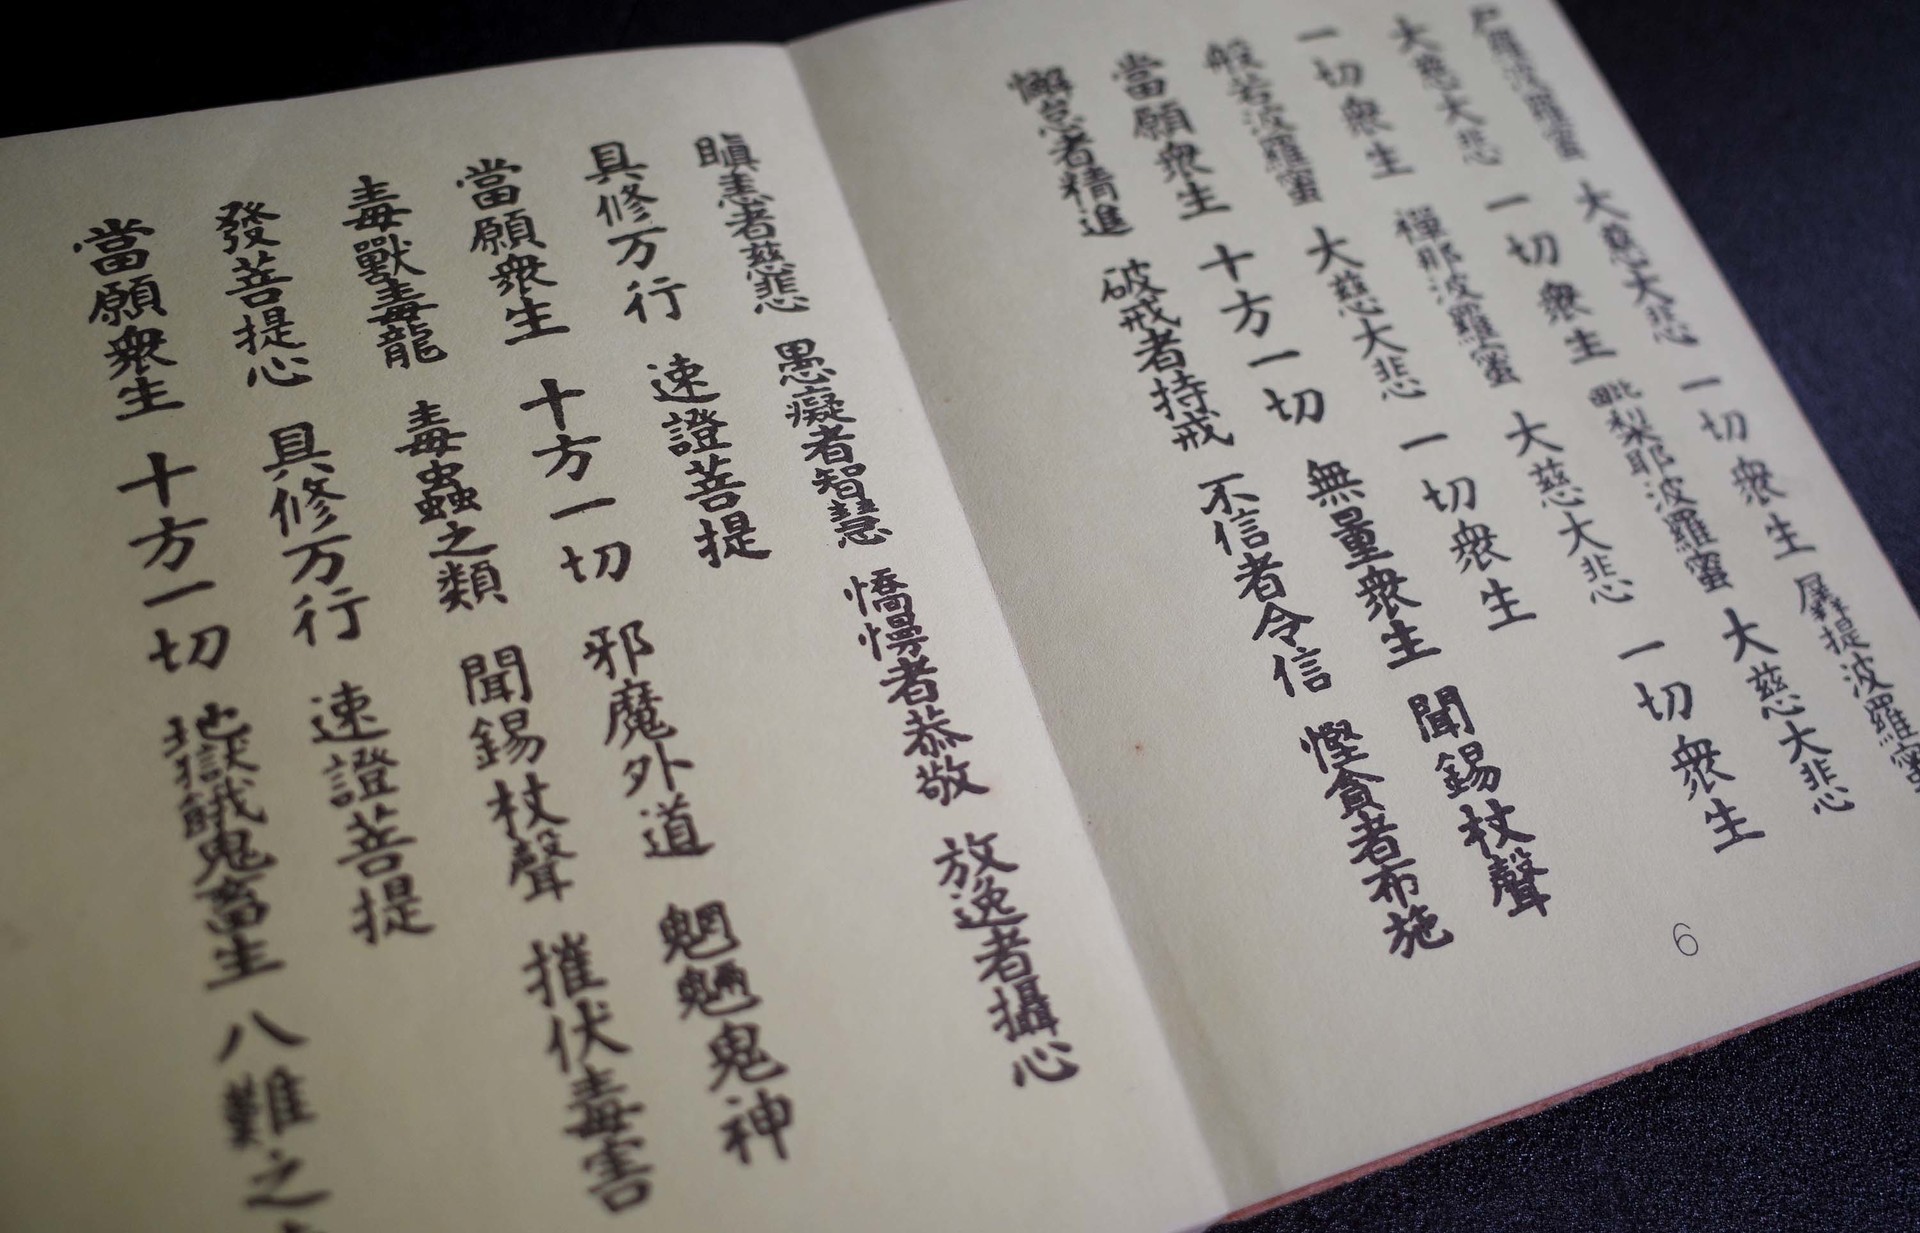 尸羅波羅蜜 大慈大悲 一切衆生 羼提波羅蜜
大慈大悲 一切衆生 毗梨耶波羅蜜 大慈大悲
一切衆生 禪那波羅蜜 大慈大悲 一切衆生
般若波羅蜜 大慈大悲 一切衆生
當願衆生 十方一切 無量衆生 聞錫杖聲
懈怠者精進 破戒者持戒 不信者令信 慳貪者布施
6
瞋恚者慈悲 愚癡者智慧 憍慢者恭敬 放逸者攝心
具修万行 速證菩提
當願衆生 十方一切 邪魔外道 魍魎鬼神
毒獸毒龍 毒蟲之類 聞錫杖聲 摧伏毒害
發菩提心 具修万行 速證菩提
當願衆生 十方一切 地獄餓鬼畜生 八難之